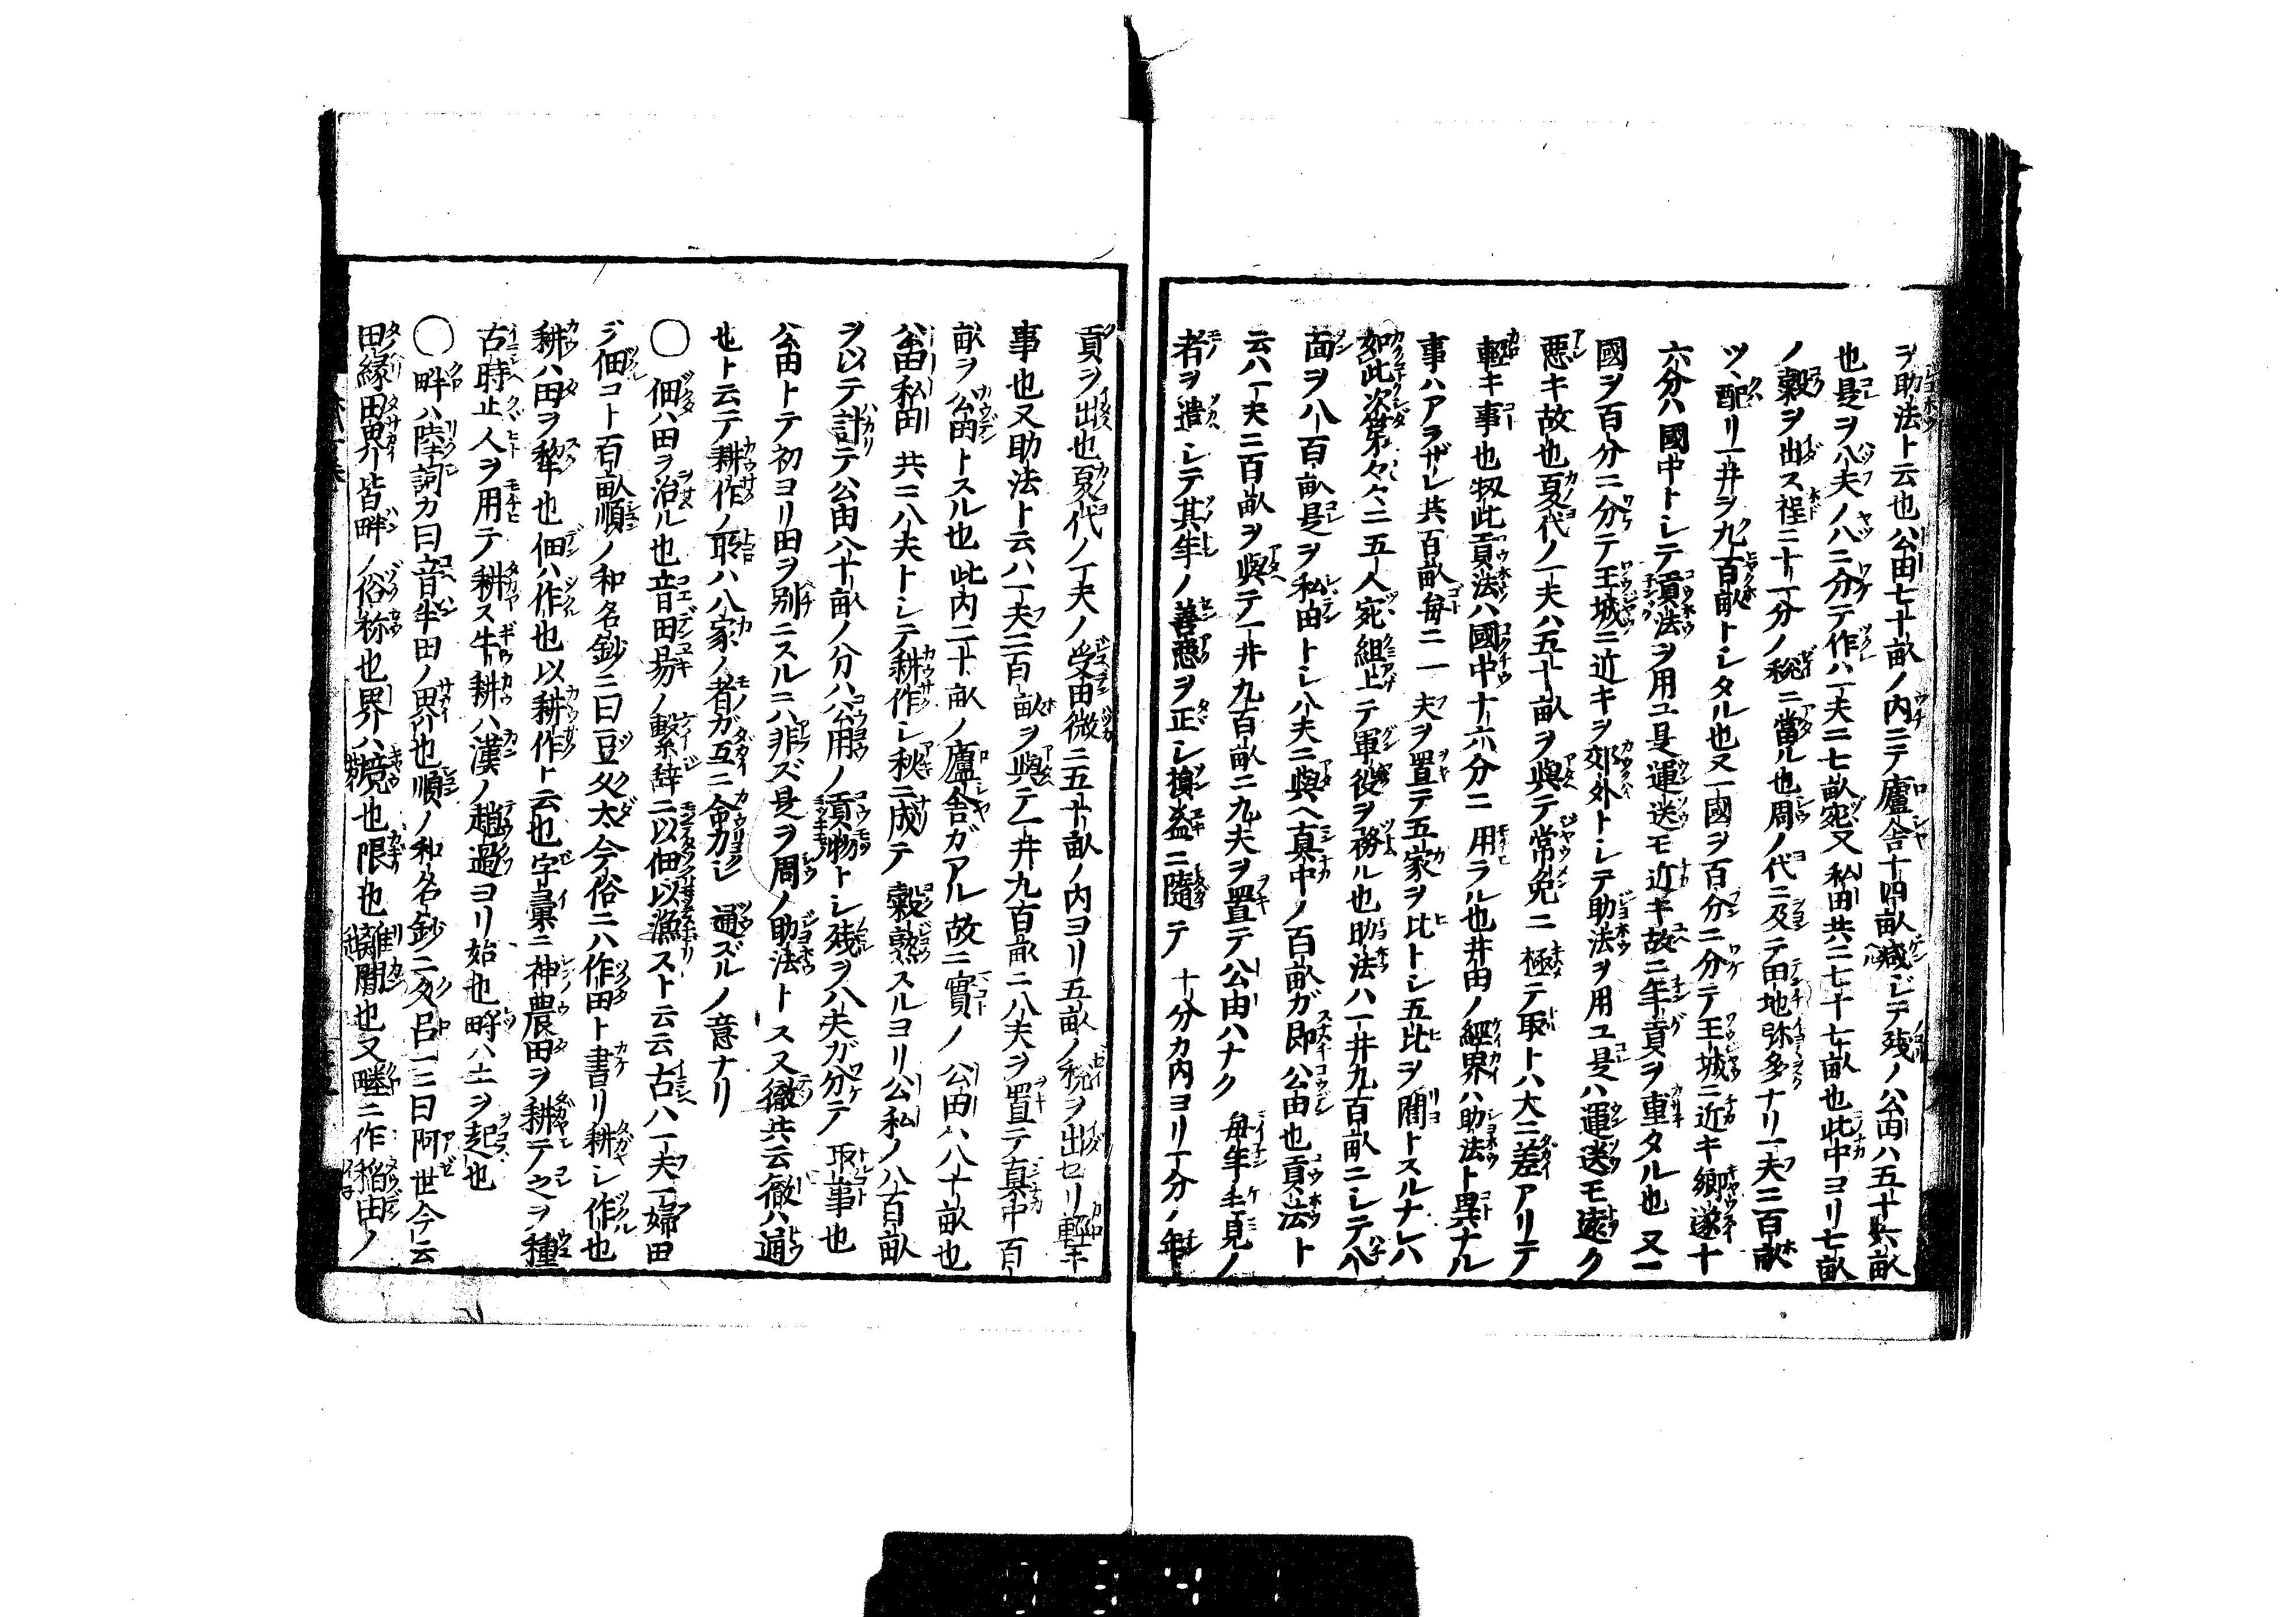 ヲ助法ト云也公田七十畝ノ内ニテ廬舎十四畝減ジテ残ノ公田ハ五十六畝
也是ヲ八夫ノ八ニ分テ作ハ一夫ニ七畝宛又私田共ニ七十七畝也此中ヨリ七畝
ノ穀ヲ出ス程ニ十一分ノ税ニ當ル也周ノ代ニ及テ田地弥多ナリ一夫ニ百畝
ツヽ配リ一井ヲ九百畝トシタル也又一國ヲ百分ニ分テ王城ニ近キ郷遂十
六分ハ國中トシテ貢法ヲ用ユ是運送モ近キ故ニ年貢ヲ重タル也又一
國ヲ百分ニ分テ王城ニ近キヲ郊外トシテ助法ヲ用ユ是ハ運送モ遠ク
悪キ故也夏代ノ一夫ハ五十畝ヲ與テ常免ニ極テ取ト八大ニ差アリテ
輕キ事也扨此貢法ハ國中十六分ニ用ラル也井田ノ經界ハ助法ト異ナル
事ハアラザレ共百畝毎ニ一夫ヲ置テ五家ヲ比トシ五比ヲ閭トスルナレハ
如此次第々々ニ五人宛組上テ軍役ヲ務ル也助法ハ一井九百畝ニシテ八
面ヲ八百畝是ヲ私田トシ八夫ニ與ヘ真中ノ百畝ガ即公田也貢法ト
云ハ一夫ニ百畝ヲ與テ一井九百畝ニ九夫ヲ置テ公田ハナク毎年毛見ノ
者ヲ遣シテ其年ノ善悪ヲ正シ損益ニ隨テ十分カ内ヨリ一分ノ年
貢ヲ出也夏代ノ一夫ノ受田微ニ五十畝ノ内ヨリ五畝ノ税ヲ出セリ輕キ
事也又助法ト云ハ一夫ニ百畝ヲ與テ一井九百畝ニ八夫ヲ置テ真中百
畝ヲ公田トスル也此内二十畝ノ廬舎ガアル故ニ實ノ公田ハ八十畝也
公田私田共ニ八夫トシテ耕作シ秋ニ成テ穀熟スルヨリ公私ノ八百畝
ヲ以テ計テ公田八十畝ノ分ハ公用ノ貢物トシ残ヲ八夫ガ分テ取事也
公田トテ初ヨリ田ヲ別ニスルニハ非ズ是ヲ周ノ助法トス又徹共云徹ハ通
也ト云テ耕作ノ取ハ八家ノ者ガ互ニ合力シ通ズルノ意ナリ
〇佃ハ田ヲ治ル也音田易ノ繋辞ニ以佃以漁スト云云古ハ一夫一婦田
ヲ佃コト百畝順ノ和名鈔ニ曰豆久太今俗ニハ作田ト書リ耕シ作也
耕ハ田ヲ犂也佃ハ作也以耕作ト云也字彙ニ神農田ヲ耕テ之ヲ種
古時止人ヲ用テ耕ス牛耕ハ漢ノ趙過ヨリ始也畤ハ土ヲ起也
〇畔ハ陸詞カ曰音半田ノ界也順ノ和名鈔ニ久呂一ニ曰阿世今云
田緣田界皆畔ノ俗称也界ハ境也限也離間也又畻ニ作稲田ノ